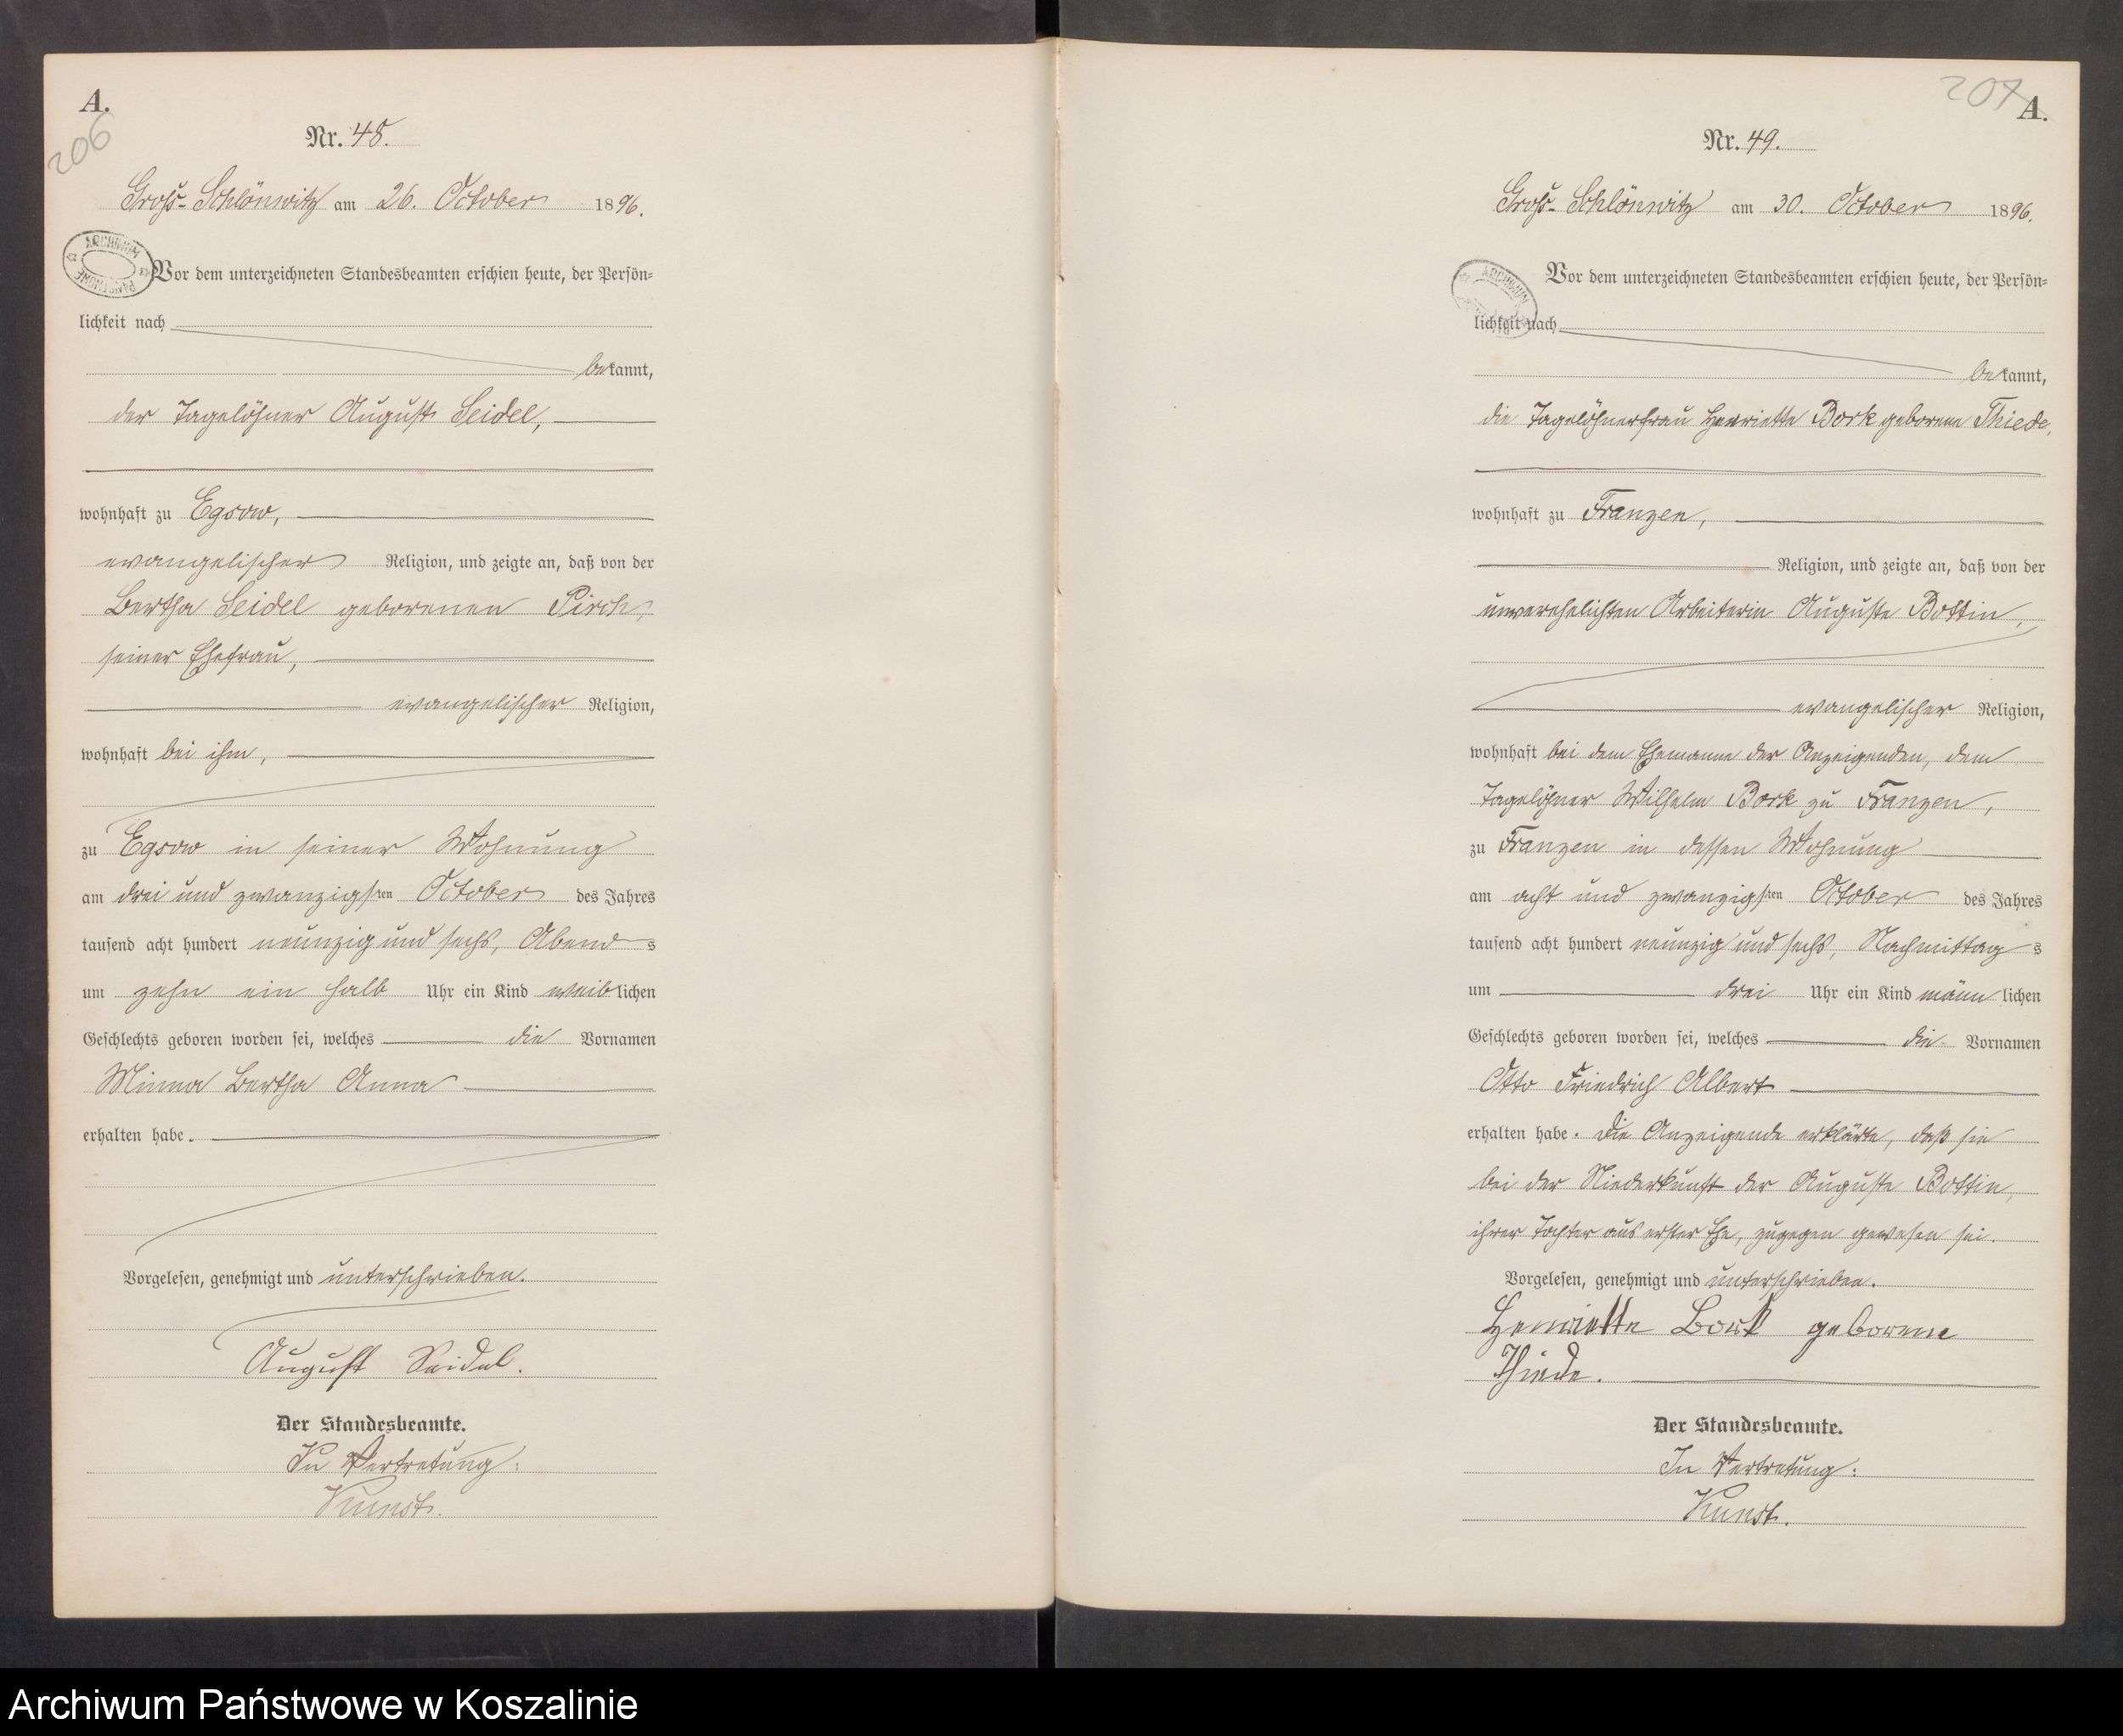 A.
206
Nr. 48.
Groß-Schlönwitz am 26. October 1896.
ARCHIWUM PAŃSTWOWE
Vor dem unterzeichneten Standesbeamten erschien heute, der Persön-
lichkeit nach
bekannt,
der Tagelöhner August Seidel,
wohnhaft zu Egsow,
evangelischer Religion, und zeigte an, daß von der
Bertha Seidel geborenen Pirch,
seiner Ehefrau,
evangelischer Religion,
wohnhaft bei ihm,
zu Egsow in seiner Wohnung
am drei und zwanzigsten October des Jahres
tausend acht hundert neunzig und sechs, Abends
um zehn ein halb Uhr ein Kind weiblichen
Geschlechts geboren worden sei, welches die Vornamen
Minna Bertha Anna
erhalten habe.
Vorgelesen, genehmigt und unterschrieben.
August Seidel.
Der Standesbeamte.
In Vertretung:
Kunst.
207
A.
Nr. 49.
Groß-Schlönwitz am 30. October 1896.
ARCHIWUM
Vor dem unterzeichneten Standesbeamten erschien heute, der Persön-
lichkeit nach
bekannt,
die Tagelöhnerfrau Henriette Bork geborene Thiede,
wohnhaft zu Franzen,
Religion, und zeigte an, daß von der
unverehelichten Arbeiterin Auguste Bottin,
evangelischer Religion,
wohnhaft bei dem Ehemanne der Anzeigenden, dem
Tagelöhner Wilhelm Bork zu Franzen,
zu Franzen in dessen Wohnung
am acht und zwanzigsten October des Jahres
tausend acht hundert neunzig und sechs, Nachmittags
um drei Uhr ein Kind männlichen
Geschlechts geboren worden sei, welches die Vornamen
Otto Friedrich Albert
erhalten habe. Die Anzeigende erklärte, daß sie
bei der Niederkunft der Auguste Bottin,
ihrer Tochter aus erster Ehe, zugegen gewesen sei.
Vorgelesen, genehmigt und unterschrieben.
Henriette Bork geborene
Thiede.
Der Standesbeamte.
In Vertretung:
Kunst.
Archiwum Państwowe w Koszalinie